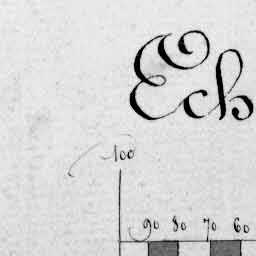 Ech
100
90 80 70 60